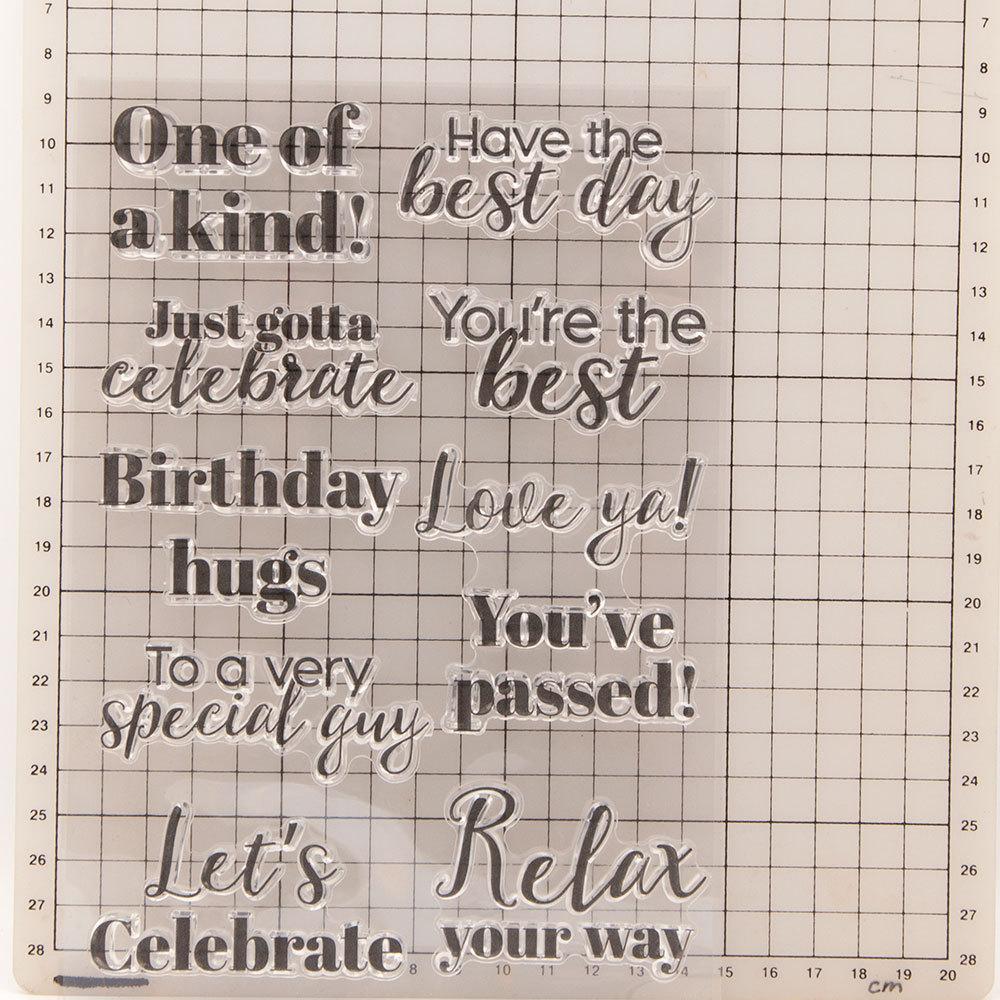 One of
a kind!
Have the
best day
Just gotta
celebrate
You're the
best
Birthday
hugs
Love ya!
You've
passed!
To a very
special guy
Let's
Celebrate
Relax
your way
7
8
9
10
11
12
13
14
15
16
17
18
19
20
21
22
23
24
25
26
27
28
7
8
9
10
11
12
13
14
15
16
17
18
19
20
21
22
23
24
25
26
27
28
8 10 11 12 13 14 15 16 17 18 19 20
cm